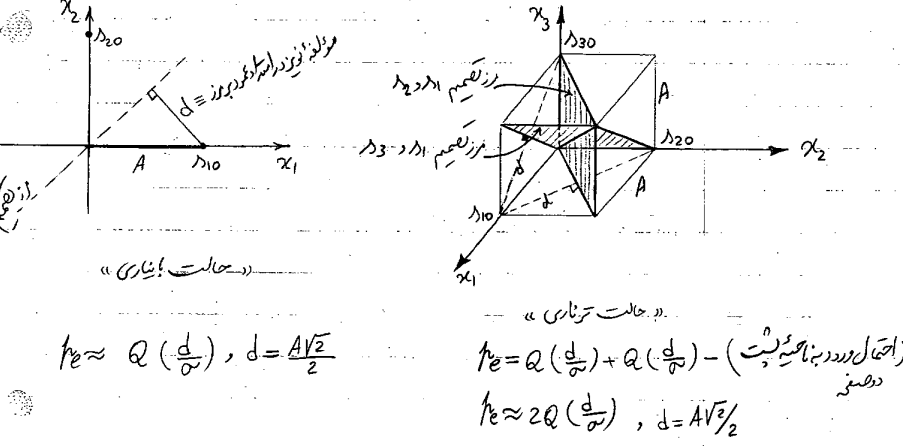 x₂
s₂₀
d ≡ مؤلفهٔ نویز در امتداد عمود بر مرز
A
s₁₀
x₁
«حالت باینری»
pe ≈ Q(d/σ) , d = A√2/2
x₃
s₃₀
مرز تصمیم s₁ و s₂
مرز تصمیم s₁ و s₃
A
s₂₀
x₂
d
d
A
s₁₀
x₁
«حالت ترناری»
pe = Q(d/σ) + Q(d/σ) − (احتمال ورود به ناحیهٔ پشت
دو صفحه
pe ≈ 2Q(d/σ) , d = A√2/2